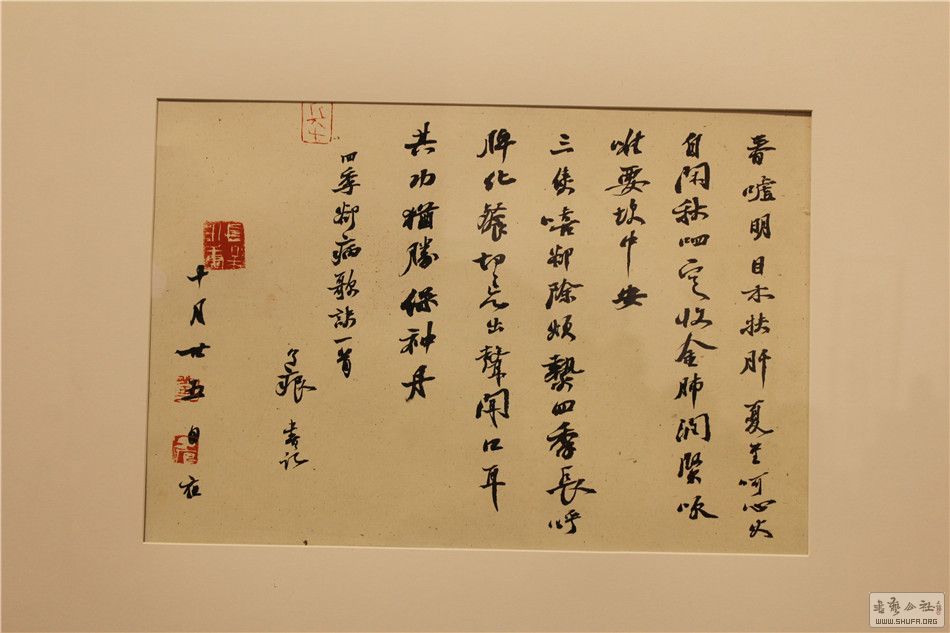 春噓明目木扶肝夏至呵心火
自閑秋呬定收金肺潤腎吹
唯要坎中安
三焦嘻卻除煩熱四季長呼
脾化餐切忌出聲聞口耳
其功猶勝保神丹
四季卻病歌訣一首
了痕書記
十月廿五日夜
書藝公社
WWW.SHUFA.ORG